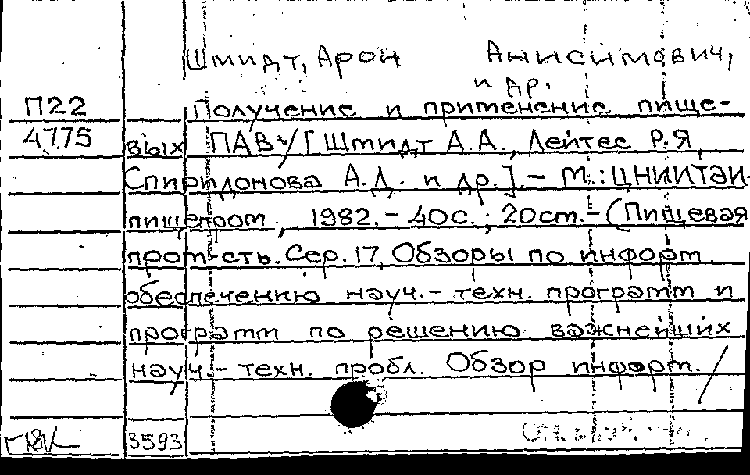 Шмидт, Арон Анисимович,
и др.
П22 Получение и применение пище-
4775 вых ПАВ/[Шмидт А.А., Лейтес Р.Я,
Спиридонова А.Д. и др.].- М.: ЦНИИТЭИ
пищепром, 1982.- 40с.; 20см.- (Пищевая
пром-сть. Сер. 17, Обзоры по информ.
обеспечению науч.- техн. программ и
программ по решению важнейших
науч.- техн. пробл. Обзор информ./
3593